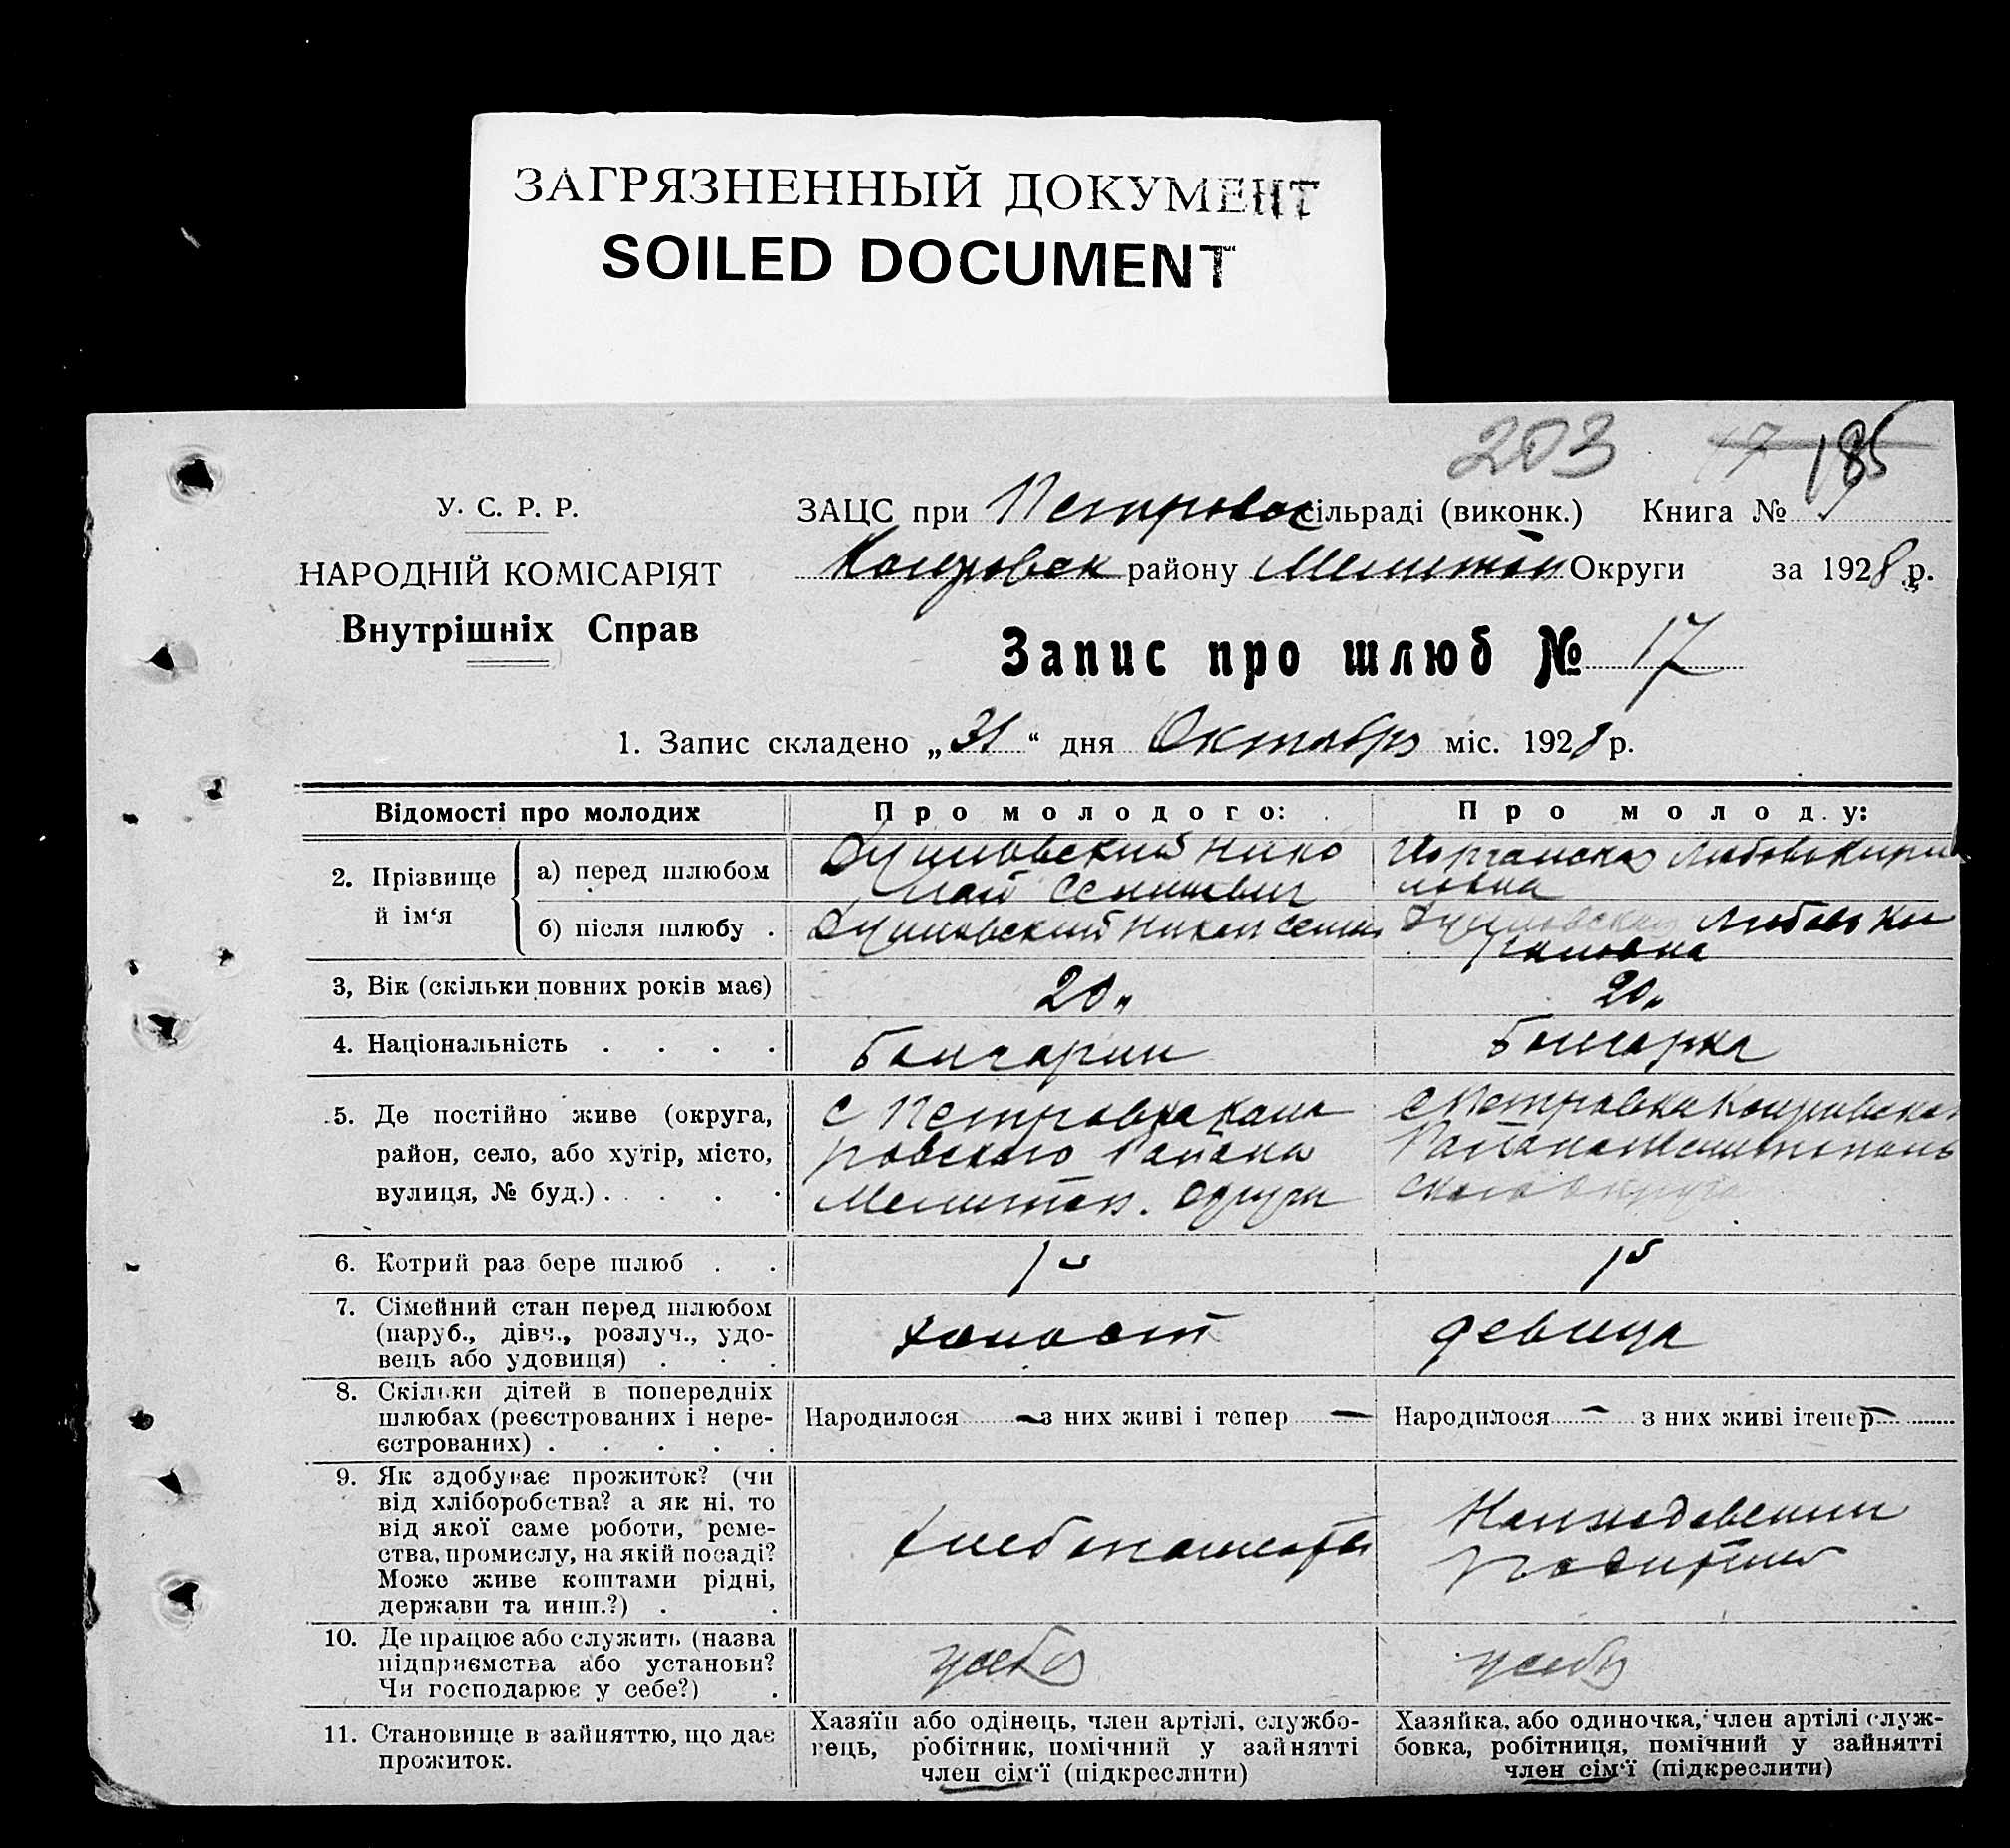 ЗАГРЯЗНЕННЫЙ ДОКУМЕНТ
SOILED DOCUMENT
203 17 185
У. С. Р. Р.
ЗАЦС при Петровск сільраді (виконк.) Книга №
НАРОДНІЙ КОМІСАРІЯТ
району Мелитоп Округи за 1928 р.
Внутрішніх Справ
Запис про шлюб № 17
1. Запис складено „31“ дня Октября міс. 1928 р.
Відомості про молодих
Про молодого:
Про молоду:
2. Прізвище й ім‘я
а) перед шлюбом
Нико
лай Семинович
Любовь Кири
ловна
б) після шлюбу .
Никол Семин
Любовь Ки
риловна
3, Вік (скільки повних років має)
20 „
20 „
4. Національність . . . .
Болгарин
Болгарка
5. Де постійно живе (округа,
район, село, або хутір, місто,
вулиця, № буд.) . . . .
с Петровка
ровского Района
Мелитоп. Округи
с Петровка
Района Мелитополь
ского округа
6. Котрий раз бере шлюб . .
1й
1й
7. Сімейний стан перед шлюбом
(паруб., дівч., розлуч., удо-
вець або удовиця) . . .
холост
девица
8. Скільки дітей в попередніх
шлюбах (реєстрованих і нере-
єстрованих) . . . . .
Народилося — з них живі і тепер —
Народилося — з них живі і тепер —
9. Як здобуває прожиток? (чи
від хліборобства? а як ні, то
від якої саме роботи, реме-
ства, промислу, на якій посаді?
Може живе коштами рідні,
держави та инш.?) . .
хлебопашества
На иждевении
родители
10. Де працює або служить (назва
підприємства або установи?
Чи господарює у себе?) .
у себя
у себя
11. Становище в зайняттю, що дає
прожиток.
Хазяїн або одінець, член артілі, службо-
вець, робітник, помічний у зайнятті
член сім‘ї (підкреслити)
Хазяйка, або одиночка, член артілі служ-
бовка, робітниця, помічний у зайнятті
член сім‘ї (підкреслити)